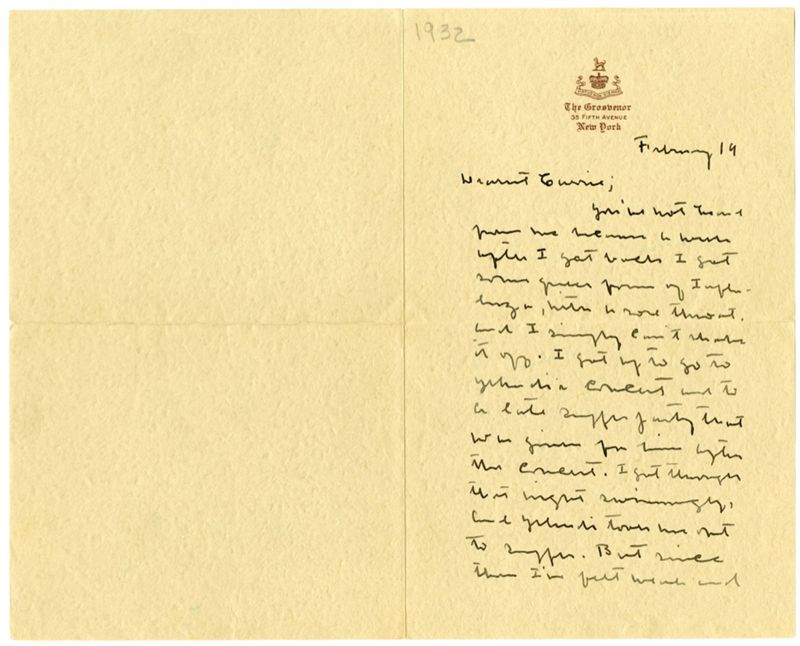 1932
The Grosvenor
35 Fifth Avenue
New York
February 19
Dearest Carrie;
You've not heard
from me because a week
after I got back I got
some queer form of Influ-
enza, with a sore throat,
and I simply can't shake
it off. I got up to go to
Yehudi's concert and to
a late supper party that
was given for him after
the concert. I got through
that night swimmingly,
and Yehudi took me out
to supper. But since
then I've felt weak and